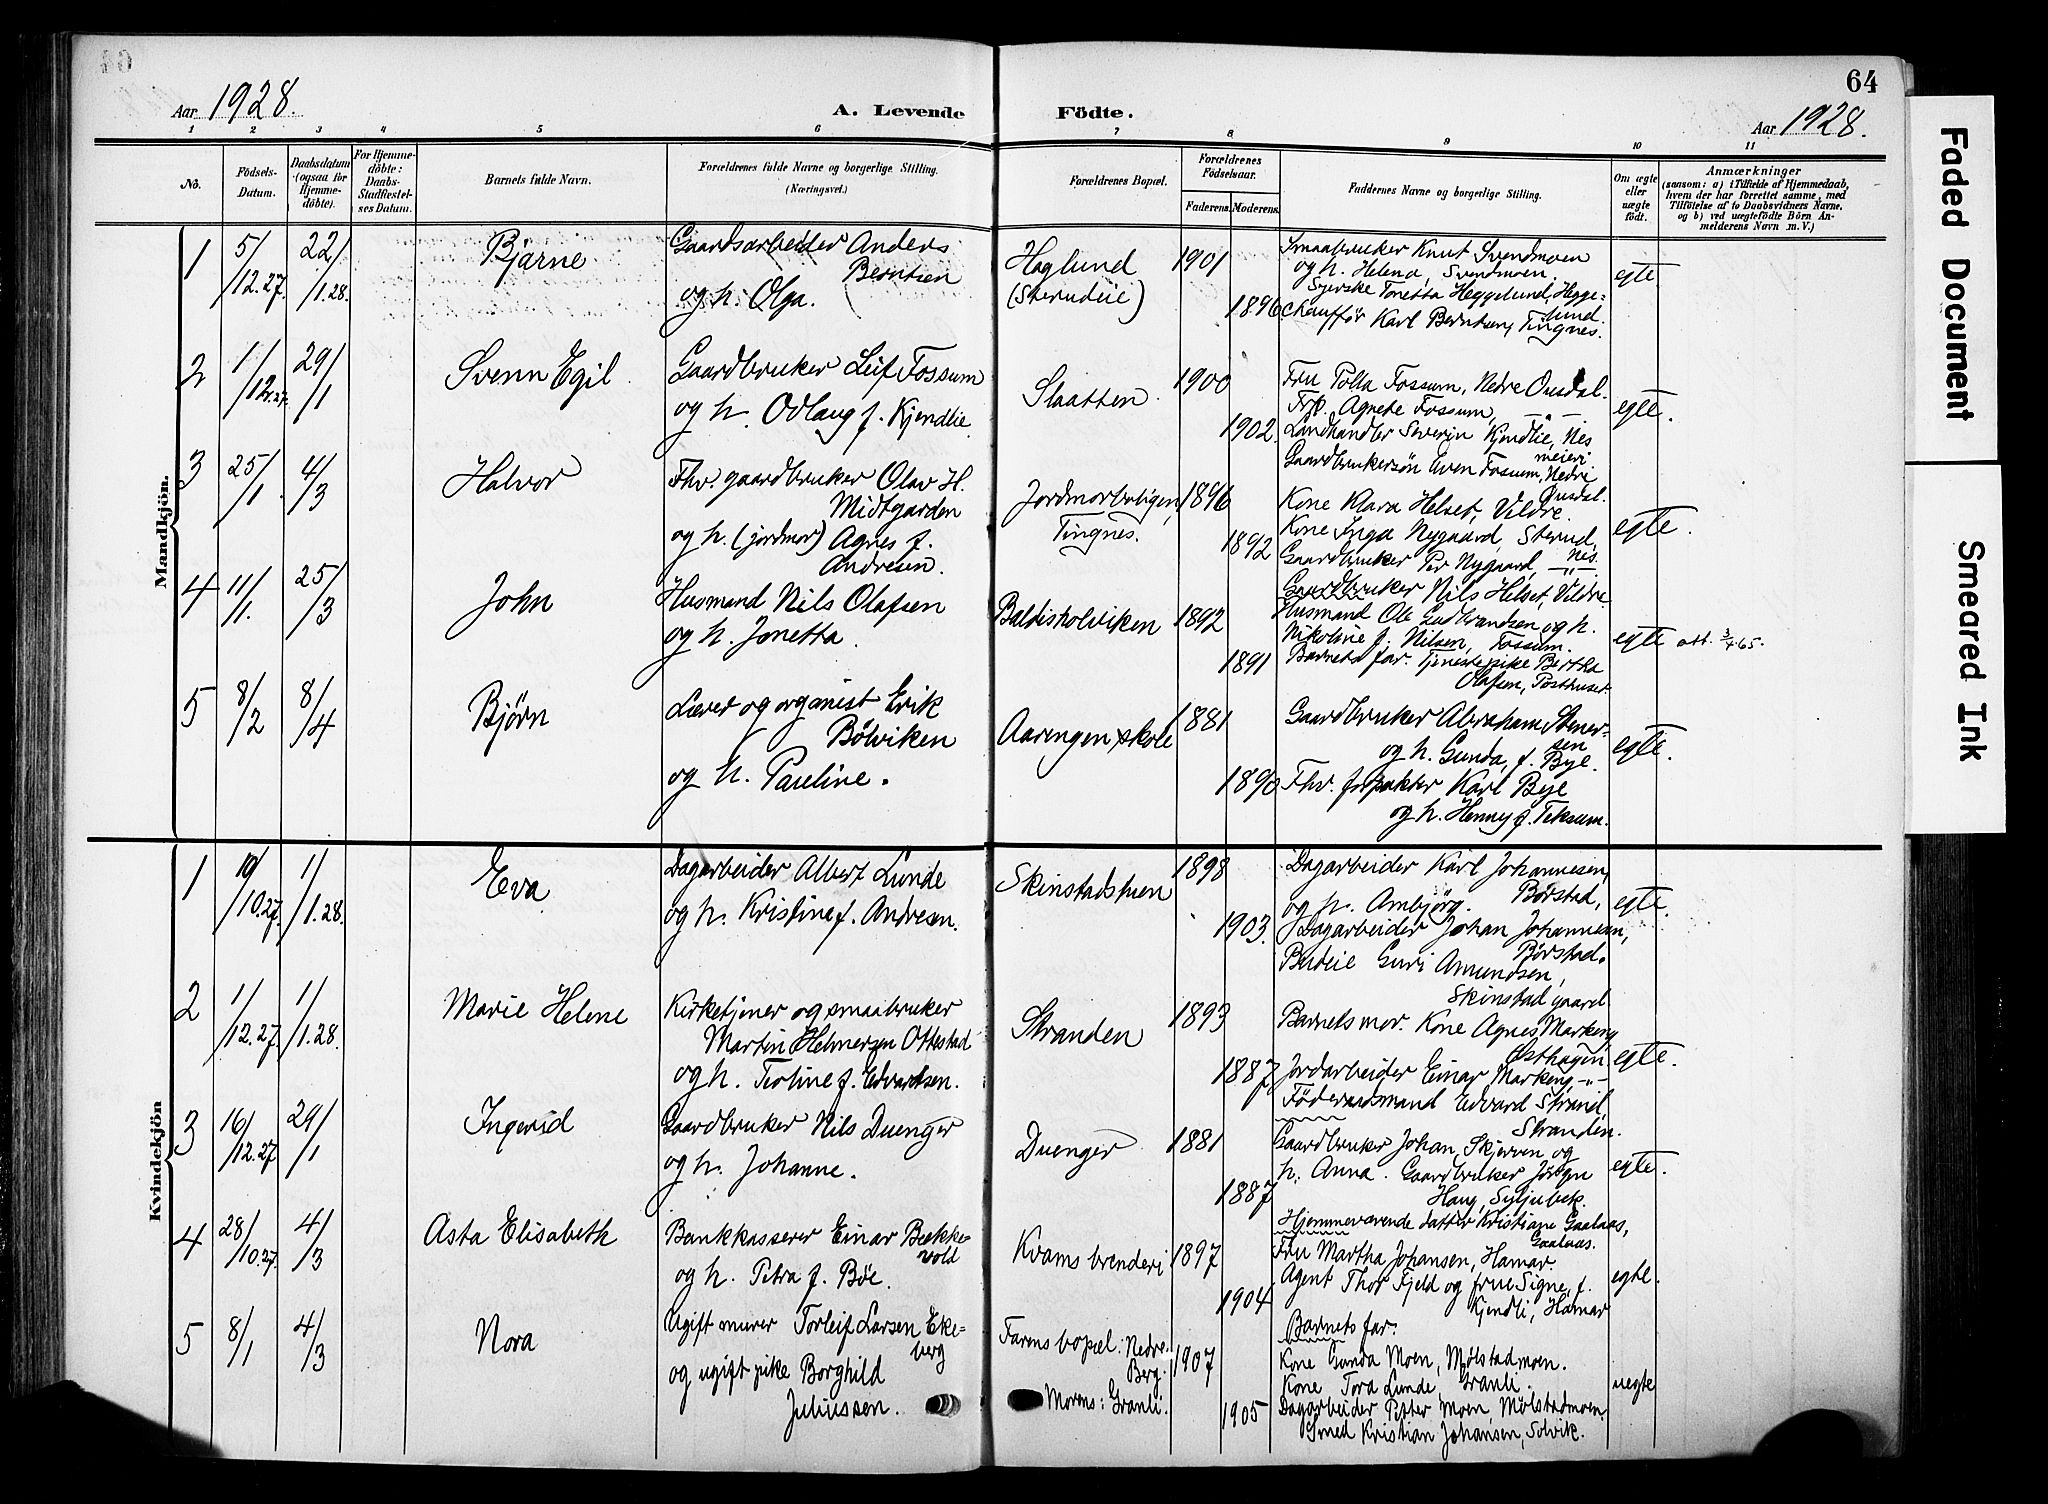 Aar 1928. A. Levende Födte. 64
Aar 1928.
1 2 3 4 5 6 7 8 9 10 11
No.
Födsels-
Datum.
Daabsdatum
(ogsaa for
Hjemme-
döbte).
For Hjemme-
döbte:
Daabs-
Stadfæstel-
ses Datum.
Barnets fulde Navn.
Forældrenes fulde Navne og borgerlige Stilling.
(Næringsvei.)
Forældrenes Bopæl.
Forældrenes
Födselsaar.
Faderens. Moderens.
Faddernes Navne og borgerlige Stilling.
Om ægte
eller
uægte
födt.
Anmærkninger
(saasom: a) i Tilfælde af Hjemmedaab,
hvem der har forrettet samme, med
Tilföielse af to Daabsvidners Navne.
og b) ved uægtefödte Börn An-
melderens Navn m.V.)
Mandkjön.
1 5/12.27. 22/1.28. Bjarne
Gaardsarbeider Anders
Berntsen
og h. Olga.
Haglund
(Sterudeie)
1901
1896
Smaabruker Knut Svendmoen
og h. Helena, Svendmoen.
Syerske Tonetta Heggelund, Hegge=
lund.
Chauffør Karl Berntsen, Tingnes.
egte.
2 1/12.27. 29/1 Svenn Egil
Gaardbruker Leif Fossum
og h. Odlaug f. Kjendlie.
Slaatten.
1900
1902.
Fru Polla Fossum, Nedre Ousdal.
Frk. Agnete Fossum, —"—
Landhandler Severin Kjendlie, Nes
meieri
Gaardbrukersøn Even Fossum, Nedre
Ousdal.
egte.
3 25/1. 4/3 Halvor
Fhv. gaardbruker Olav H.
Midtgarden
og h. (jordmor) Agnes f.
Andresen.
Jordmorboligen,
Tingnes.
1896
1892
Kone Klara Helset, Vildre.
Kone Inga Nygaard, Sterud,
Nes.
Gaardbruker Per Nygaard, —"—
Gaardbruker Nils Helset, Vildre.
egte.
4 11/1. 25/3 John
Husmand Nils Olafsen
og h. Jonetta.
Baldisholviken
1892
1891
Husmand Ole Gudbrandsen og h.
Nikoline f. Nilsen, Fossum.
Barnets far. Tjenestepike Bertha
Olafsen, Posthuset.
egte att. 3/4 65.
5 8/2 8/4 Bjørn
Lærer og organist Erik
Bølviken
og h. Pauline.
Aarengen skole
1881
1890
Gaardbruker Abraham Stener-
sen
og h. Gunda, f. Bye.
Fhv. forpakter Karl Bye
og h. Henny f. Teksum.
egte.
Kvindekjön
1 19/10.27. 1/1.28. Eva
Dagarbeider Albert Lunde
og h. Kristine f. Andresen.
Skinstadstuen
1898
1903.
Dagarbeider Karl Johannesen,
Børstad,
og h. Ambjörg.
Dagarbeider Johan Johannesen,
Børstad.
Budeie Guri Amundsen,
Skinstad gaard
egte.
2 1/12.27. 1/1.28. Marie Helene
Kirketjener og smaabruker
Martin Helmersen Ottestad
og h. Teoline f. Edvardsen.
Stranden
1893
1887
Barnets mor. Kone Agnes Markeng
Østhagen
Jordarbeider Einar Markeng, —"—
Föderaadsmand Edvard Strand,
Stranden.
egte.
3 16/12.27 29/1 Ingerid
Gaardbruker Nils Duenger
og h. Johanne.
Duenger
1881
1887
Gaardbruker Johan Skjerven og
h. Anna. Gaardbruker Jörgen
Haug, Syljubek.
Hjemmeværende datter Kristiane Gaalaas,
Gaalaas.
egte.
4 28/10.27. 4/3 Asta Elisabeth
Bankkasserer Einar Bække-
vold
og h. Petra f. Böe.
Kvams brenderi
1897
1904
Fru Martha Johansen, Hamar.
Agent Thor Fjeld og frue Signe, f.
Kjendli, Hamar
Barnets far.
egte.
5 8/1 4/3 Nora
Ugift murer Torleif Larsen Eke-
berg
og ugift pike Borghild
Juliussen.
Farens bopæl: Nedre
Berg.
Morens: Granli.
1907
1905
Kone Gunda Moen, Mølstadmoen.
Kone Tora Lunde, Granli.
Dagarbeider Petter Moen, Mølstadmoen.
Smed Kristian Johansen, Solvik.
uegte
Faded Document
Smeared Ink